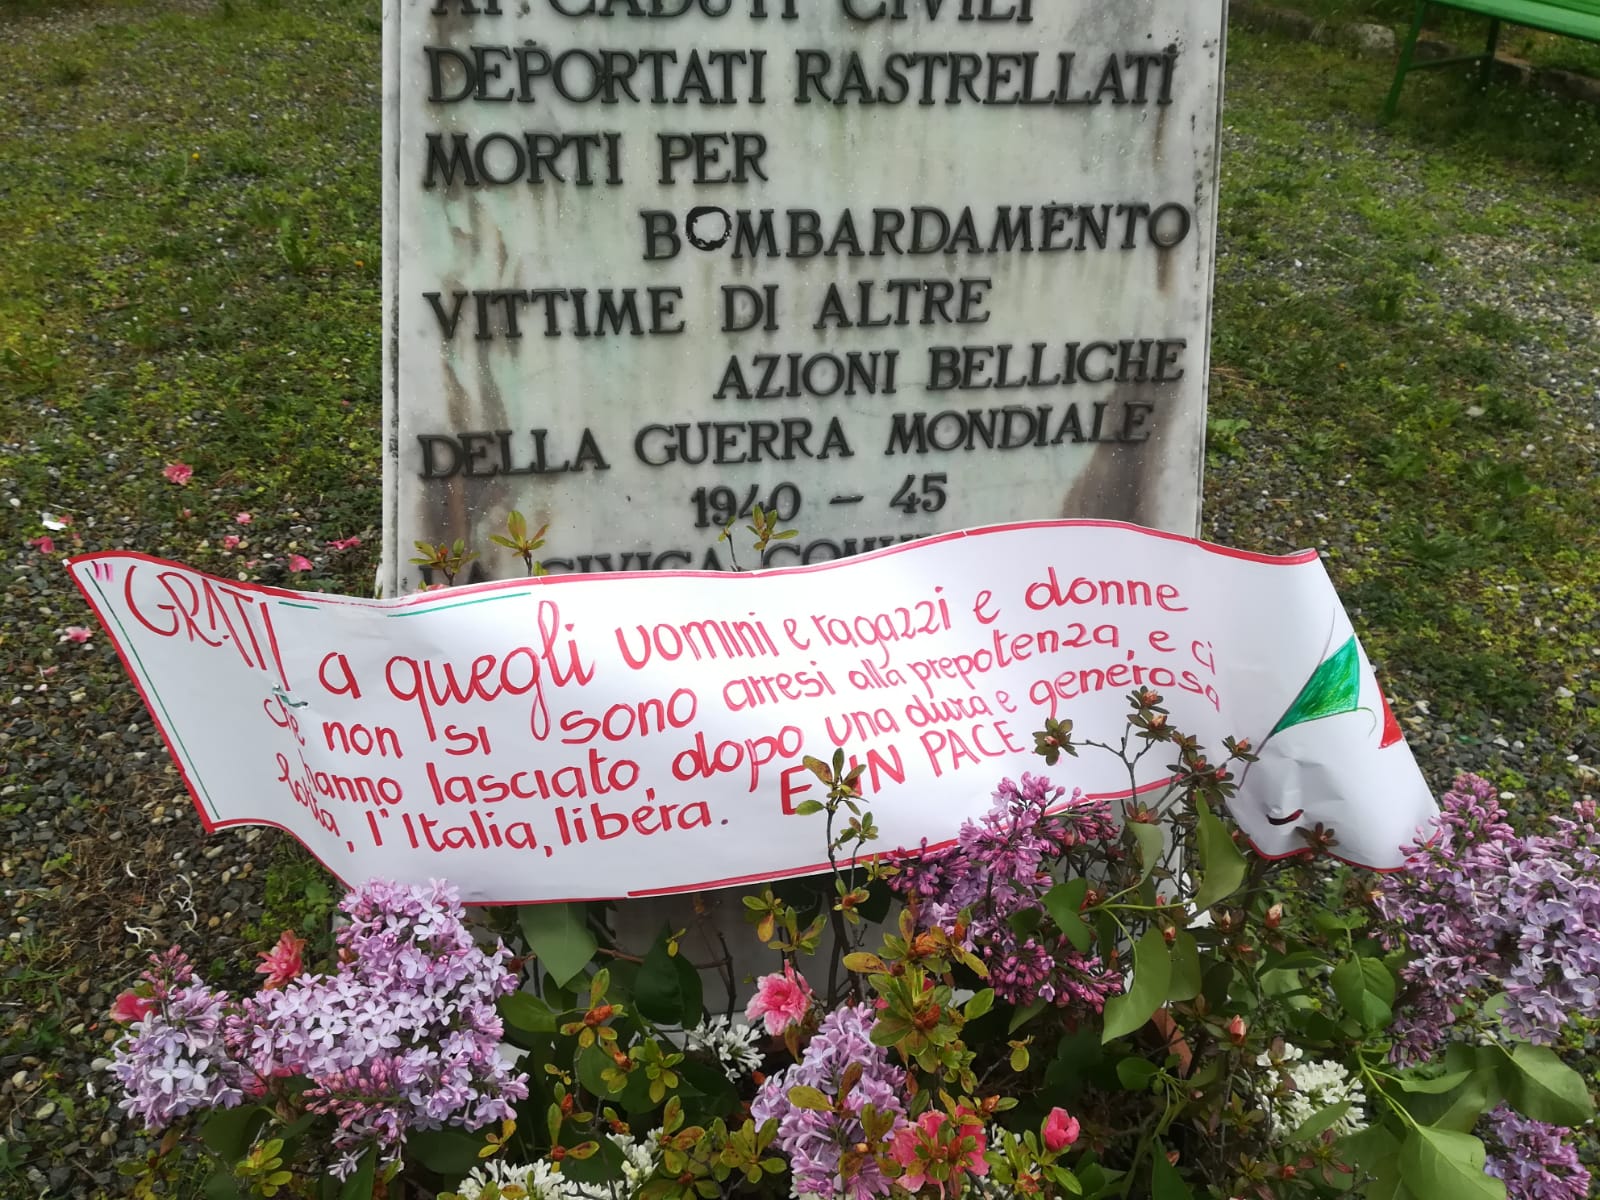 AI CADUTI CIVILI
DEPORTATI RASTRELLATI
MORTI PER
BOMBARDAMENTO
VITTIME DI ALTRE
AZIONI BELLICHE
DELLA GUERRA MONDIALE
1940 - 45
LA CIVICA
"GRATI a quegli uomini e ragazzi e donne
che non si sono arresi alla prepotenza, e ci
hanno lasciato, dopo una dura e generosa
lotta, l'Italia, libera. E IN PACE